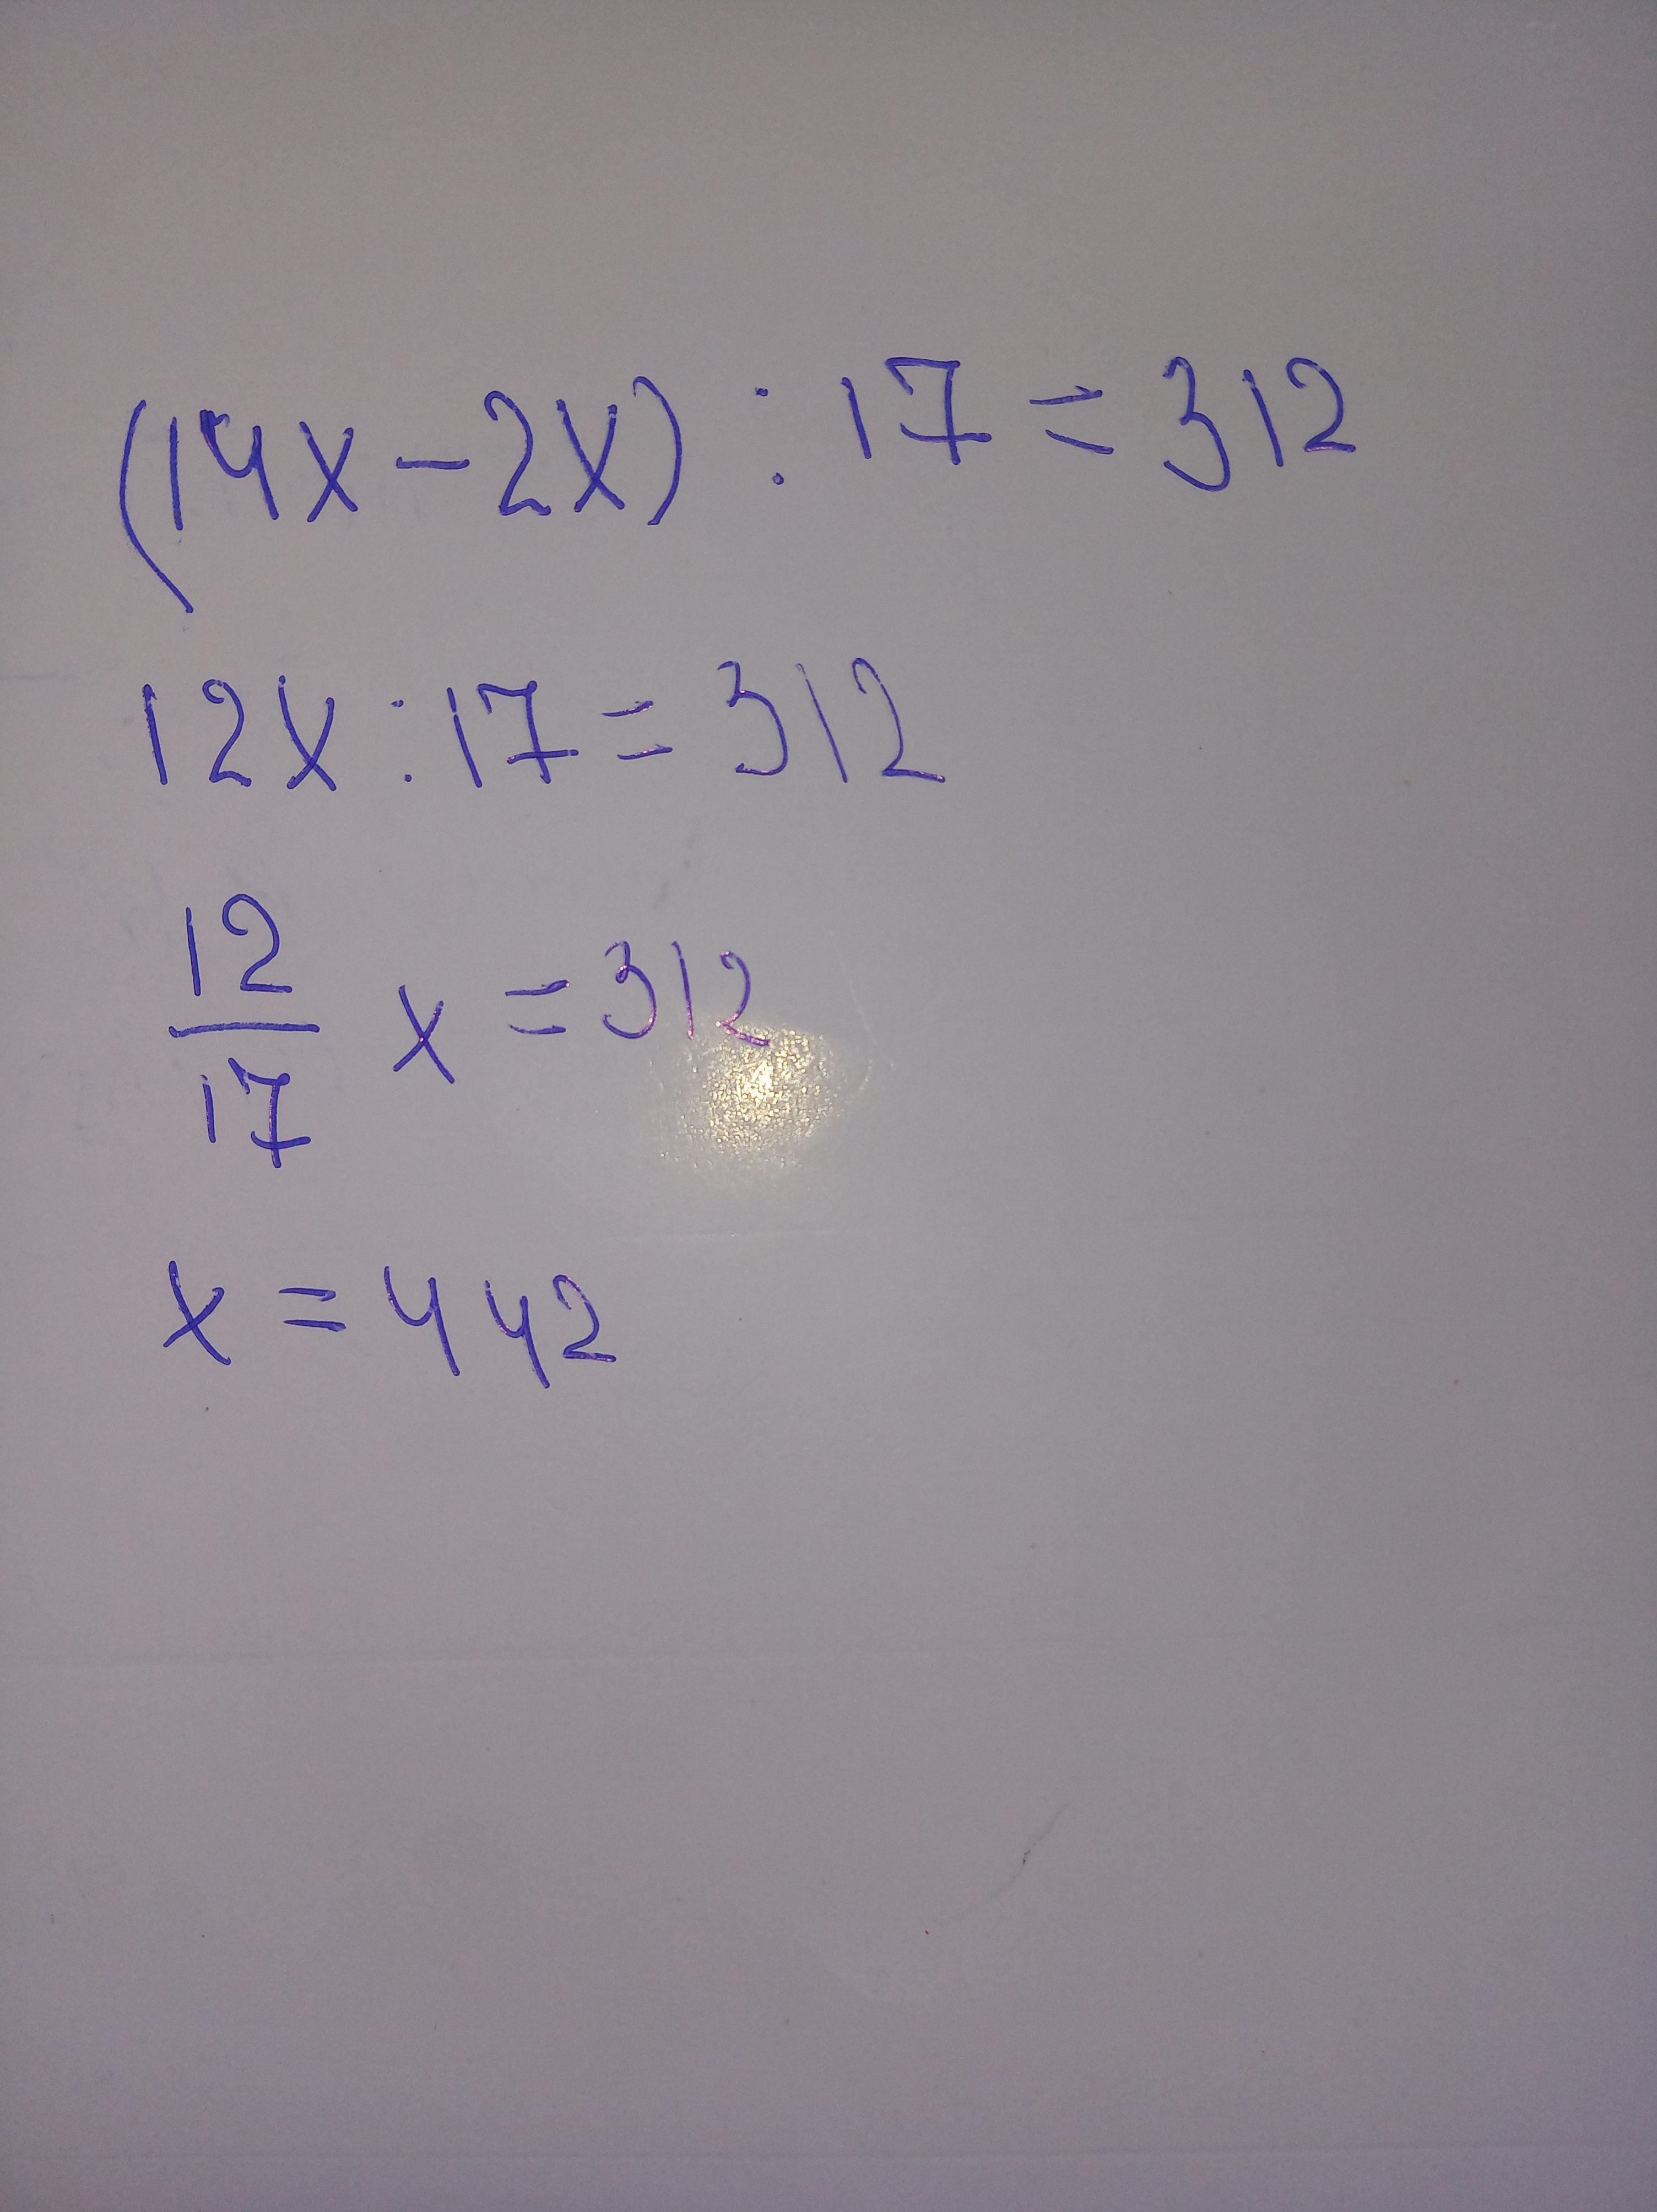 (14x-2x) : 17 = 312
12x : 17 = 312
12
17 x = 312
x = 442